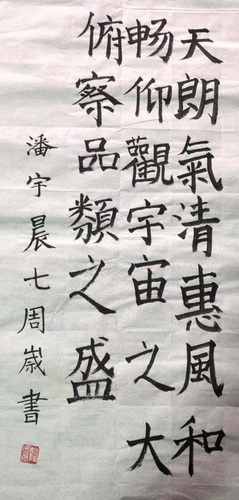 天朗氣清惠風和
暢仰觀宇宙之大
俯察品類之盛
潘宇晨七周歲書